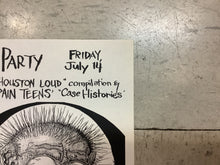 PARTY FRIDAY,
July 14
HOUSTON LOUD" compilation &
PAIN TEENS' "Case Histories"